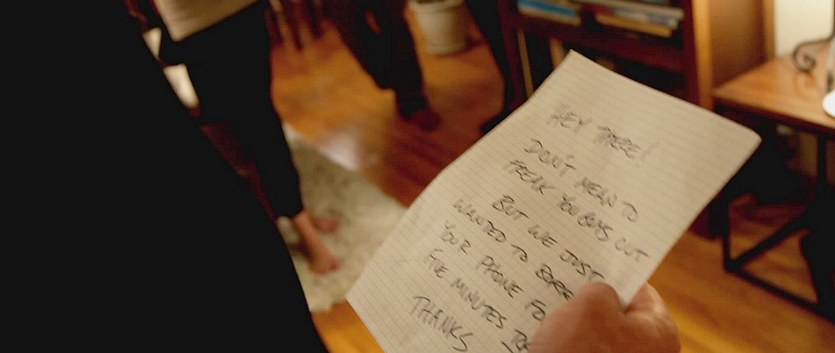 HEY THERE!
DON'T MEAN TO
FREAK YOU GUYS OUT
BUT WE JUST
WANTED TO
YOUR PHONE
FIVE MINUTES
THANKS